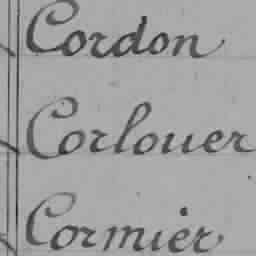 Cordon
Corlouer
Cormier